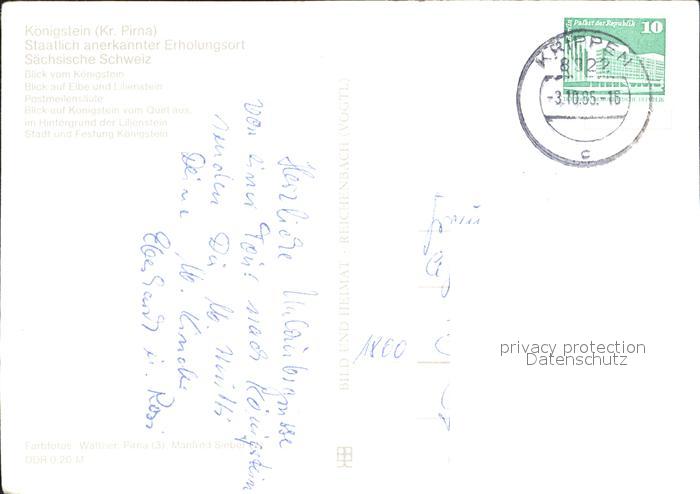 Königstein (Kr. Pirna)
Staatlich anerkannter Erholungsort
Sächsische Schweiz
Blick vom Königstein
Blick auf Elbe und Lilienstein
Postmeilensäule
Blick auf Königstein vom Quirl aus,
im Hintergrund der Lilienstein
Stadt und Festung Königstein
Palast der Republik 10
KRIPPEN
8322
-3.10.85.-16
c
Herzliche Urlaubsgrüsse
von einer Tour nach Königstein
senden Dir lb. Mutti
Deine lb. Kinder
Eberhard u. Rosi
BILD UND HEIMAT · REICHENBACH (VOGTL)
Frau
1860
privacy protection
Datenschutz
Farbfotos: Wattner, Pirna (3), Manfred Sieber
DDR 0,20 M